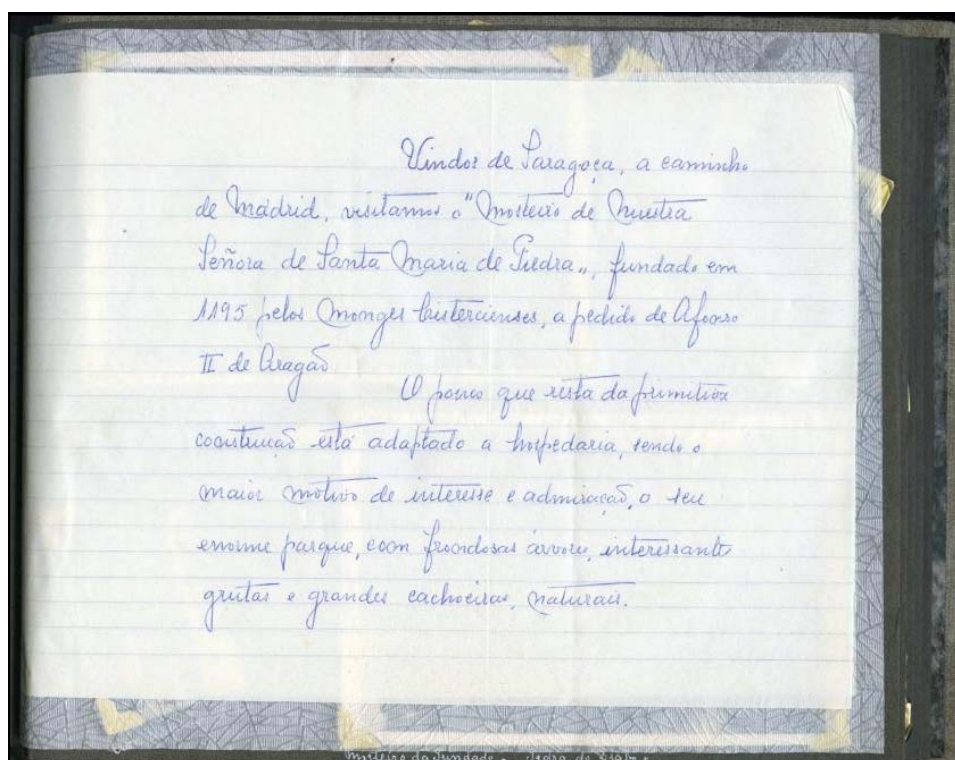 Vindos de Saragoça, a caminho
de Madrid, visitamos o "Mosteiro de Nuestra
Señora de Santa Maria de Piedra", fundado em
1195 pelos Monges Cistercienses, a pedido de Afonso
II de Aragão
O pouco que resta da primitiva
construção está adaptado a hospedaria, sendo o
maior motivo de interesse e admiração, o seu
enorme parque, com frondosas árvores, interessantes
grutas e grandes cachoeiras, naturais.